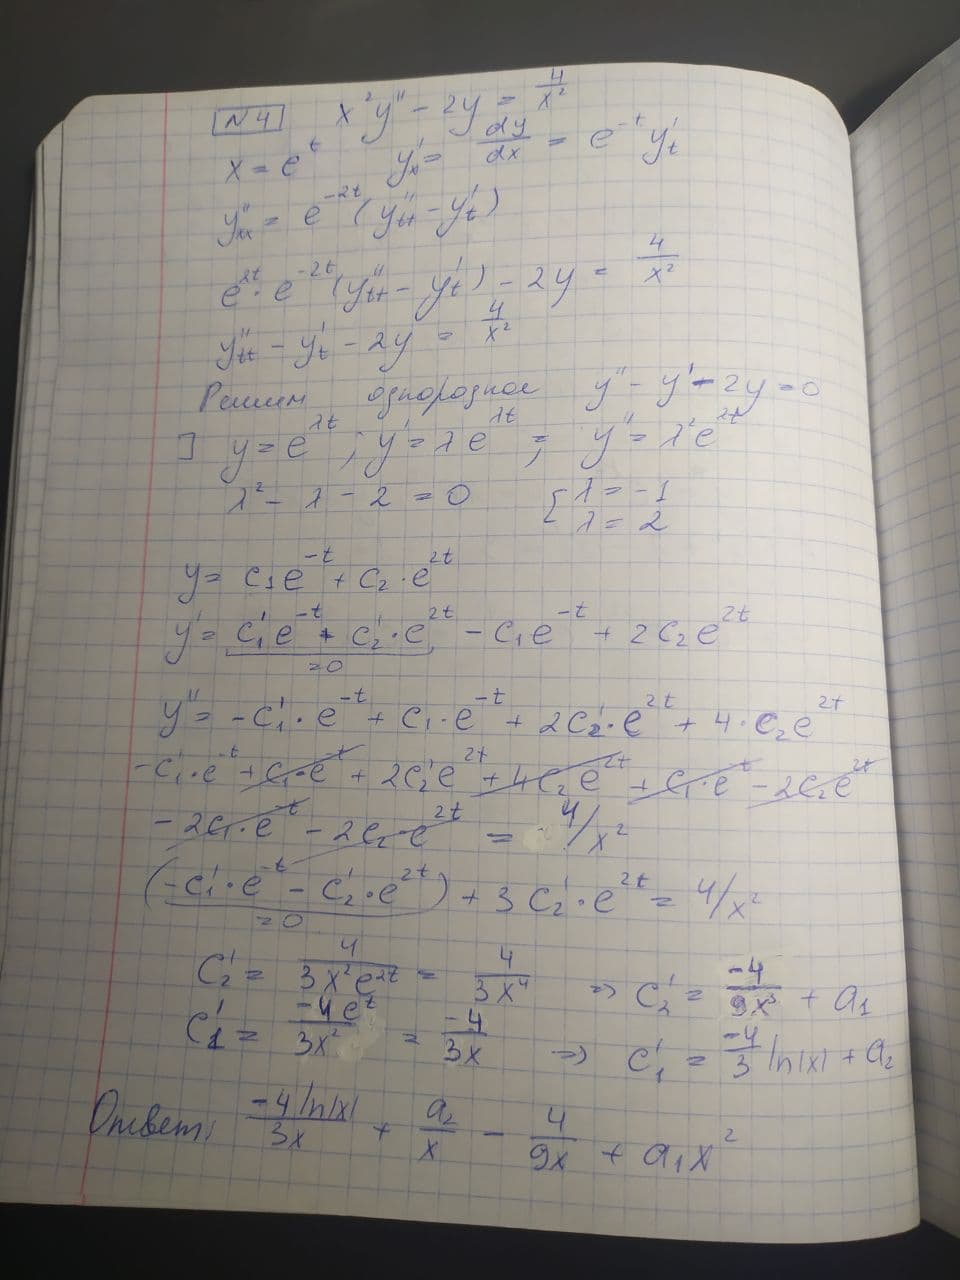 N4 x²y'' - 2y = 4/x²
x = e^t y'ₓ = dy/dx = e^{-t} y'ₜ
y''ₓₓ = e^{-2t}(y''ₜₜ - y'ₜ)
e^{2t}·e^{-2t}(y''ₜₜ - y'ₜ) - 2y = 4/x²
y''ₜₜ - y'ₜ - 2y = 4/x²
Решим однородное y'' - y' - 2y = 0
] y = e^{λt}; y' = λe^{λt}; y'' = λ²e^{λt}
λ² - λ - 2 = 0 [ λ = -1
λ = 2
y = C₁e^{-t} + C₂·e^{2t}
y' = C₁'e^{-t} + C₂'·e^{2t} - C₁e^{-t} + 2C₂e^{2t}
=0
y'' = -C₁'·e^{-t} + C₁·e^{-t} + 2C₂'·e^{2t} + 4·C₂e^{2t}
-C₁'·e^{-t} + C₁·e^{-t} + 2C₂'e^{2t} + 4C₂e^{2t} + C₁·e^{-t} - 2C₂e^{2t}
- 2C₁·e^{-t} - 2C₂·e^{2t} = 4/x²
(-C₁'·e^{-t} - C₂'·e^{2t}) + 3C₂'·e^{2t} = 4/x²
=0
C₂' = 4/(3x²e^{2t}) = 4/(3x⁴) => C₂' = -4/(9x³) + a₁
C₁' = -4e^t/(3x²) = -4/(3x) => C₁' = -4/3 ln|x| + a₂
Ответ: -4ln|x|/(3x) + a₂/x - 4/(9x) + a₁x²